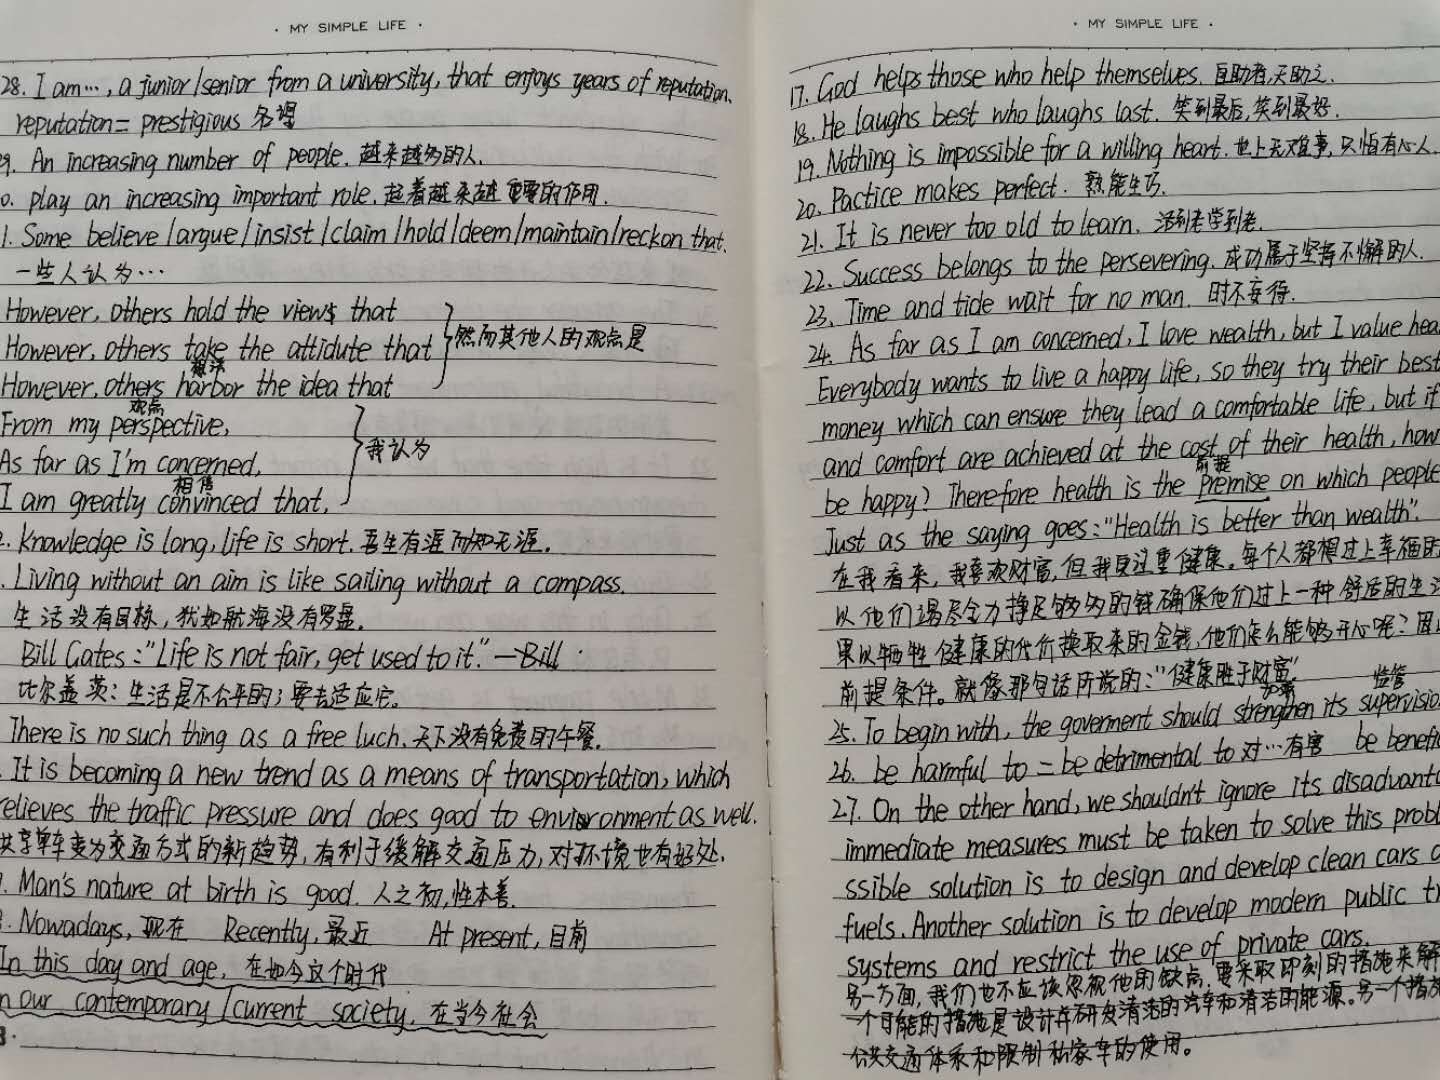 · MY SIMPLE LIFE ·
28. I am…, a junior/senior from a university, that enjoys years of reputation.
reputation = prestigious 名望
9. An increasing number of people. 越来越多的人.
0. play an increasing important role. 起着越来越重要的作用.
1. Some believe/argue/insist/claim/hold/deem/maintain/reckon that.
一些人认为…
However, others hold the views that
However, others take the attidute that 然而其他人的观点是
想法
However, others harbor the idea that
观点
From my perspective,
As far as I'm concerned, 我认为
相信
I am greatly convinced that,
2. knowledge is long, life is short. 吾生有涯而知无涯.
. Living without an aim is like sailing without a compass.
生活没有目标, 犹如航海没有罗盘.
Bill Gates: "Life is not fair, get used to it." —Bill ·
比尔盖茨: 生活是不公平的; 要去适应它.
There is no such thing as a free luch. 天下没有免费的午餐.
. It is becoming a new trend as a means of transportation, which
relieves the traffic pressure and does good to environment as well.
共享单车变为交通方式的新趋势, 有利于缓解交通压力, 对环境也有好处.
. Man's nature at birth is good. 人之初, 性本善.
. Nowadays, 现在 Recently, 最近 At present, 目前
In this day and age, 在如今这个时代
n our contemporary/current society. 在当今社会
· MY SIMPLE LIFE ·
17. God helps those who help themselves. 自助者, 天助之.
18. He laughs best who laughs last. 笑到最后, 笑到最好.
19. Nothing is impossible for a willing heart. 世上无难事, 只怕有心人.
20. Pactice makes perfect. 熟能生巧.
21. It is never too old to learn. 活到老学到老.
22. Success belongs to the persevering. 成功属于坚持不懈的人.
23. Time and tide wait for no man. 时不安待.
24. As far as I am concerned, I love wealth, but I value hea
Everybody wants to live a happy life, so they try their best
money which can ensure they lead a comfortable life, but if
and comfort are achieved at the cost of their health, how
前提
be happy? Therefore health is the premise on which people
Just as the saying goes: "Health is better than wealth".
在我看来, 我喜欢财富, 但我更注重健康. 每个人都想过上幸福的
以他们竭尽全力挣足够多的钱确保他们过上一种舒适的生活
果以牺牲健康的代价换取来的金钱, 他们怎么能够开心呢? 因此
前提条件. 就像那句话所说的: "健康胜于财富"
加强 监管
25. To begin with, the goverment should strengthen its supervisio
26. be harmful to = be detrimental to 对…有害 be benefic
27. On the other hand, we shouldn't ignore its disadvanta
immediate measures must be taken to solve this probl
ssible solution is to design and develop clean cars a
fuels. Another solution is to develop modern public tr
systems and restrict the use of private cars.
另一方面, 我们也不应该忽视他的缺点, 要采取即刻的措施来解
一个可能的措施是设计并研发清洁的汽车和清洁的能源. 另一个措施
公共交通体系和限制私家车的使用.